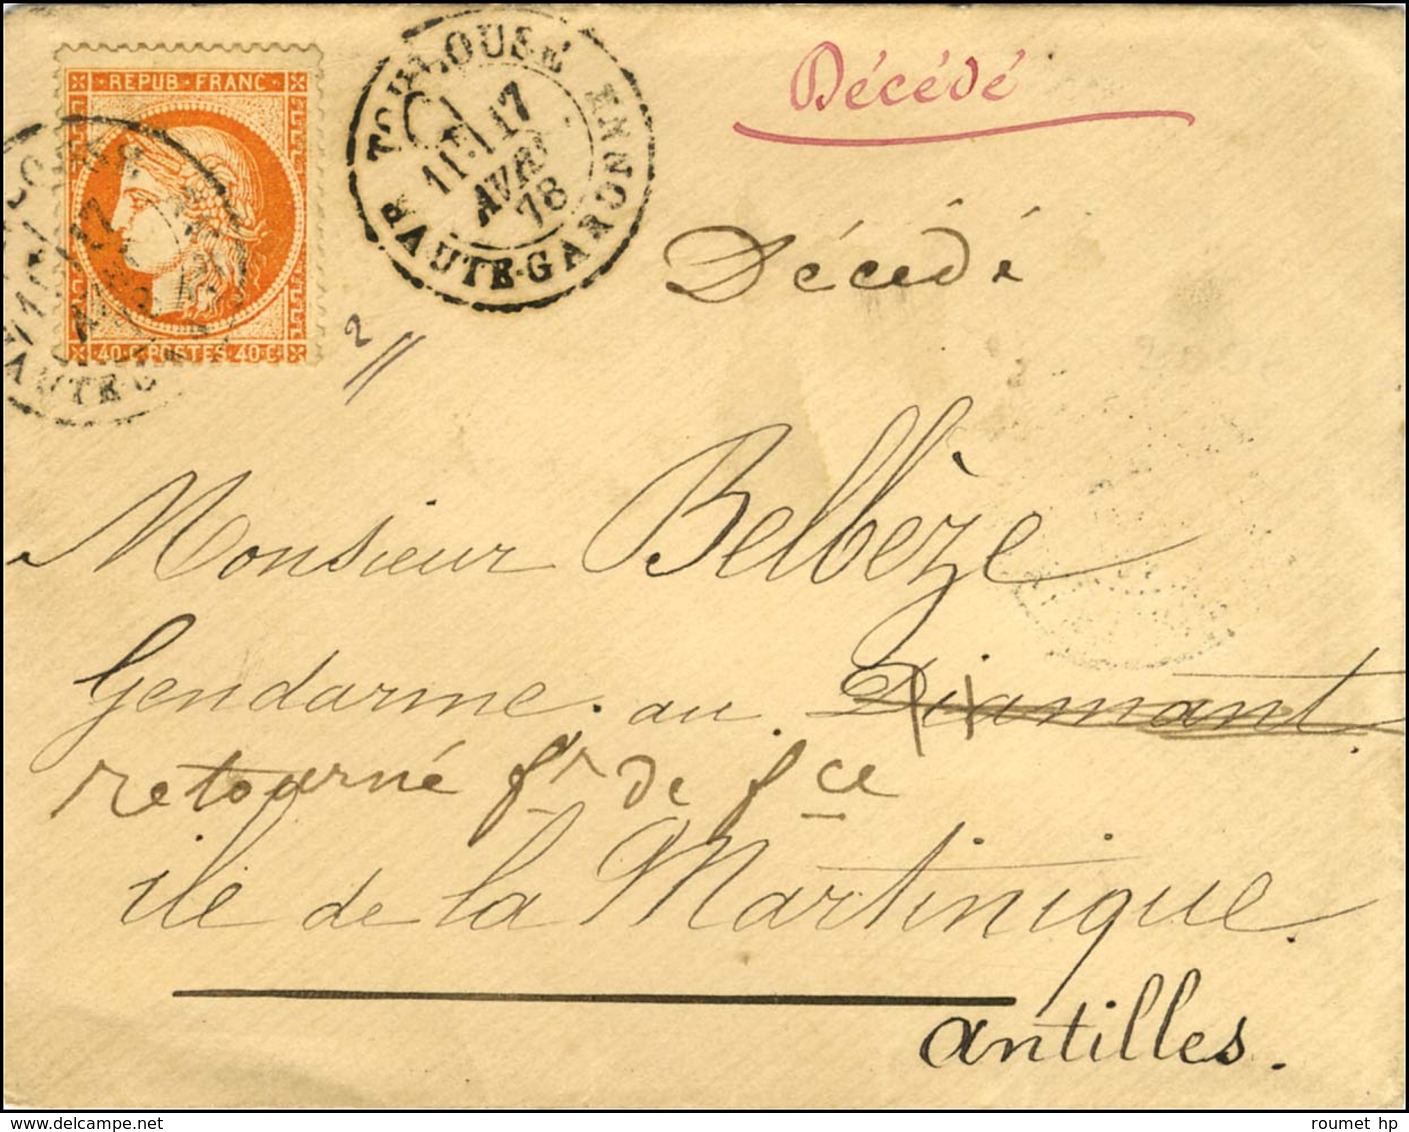 REPUB · FRANC
40 C POSTES 40 C
TOULOUSE
17
AVRIL
78
HAUTE-GARONNE
Décédé
Décédé
2
Monsieur Belbèze
Gendarme au Diamant.
retourné fr de fce
île de la Martinique.
antilles.
roumet hp